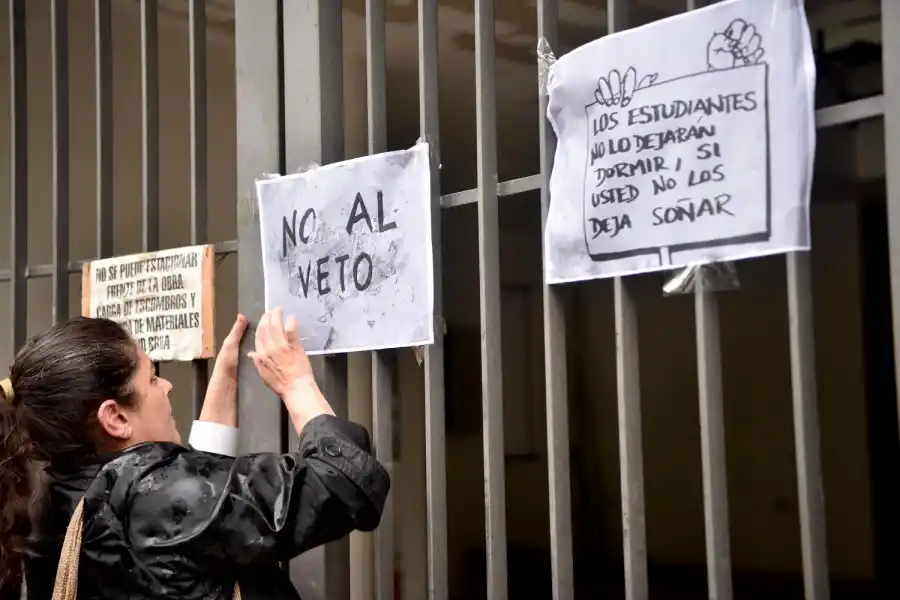 NO SE PUEDE ESTACIONAR
FRENTE DE LA OBRA
CARGA DE ESCOMBROS Y
DE MATERIALES
NO AL
VETO
LOS ESTUDIANTES
NO LO DEJARÁN
DORMIR, SI
USTED NO LOS
DEJA SOÑAR